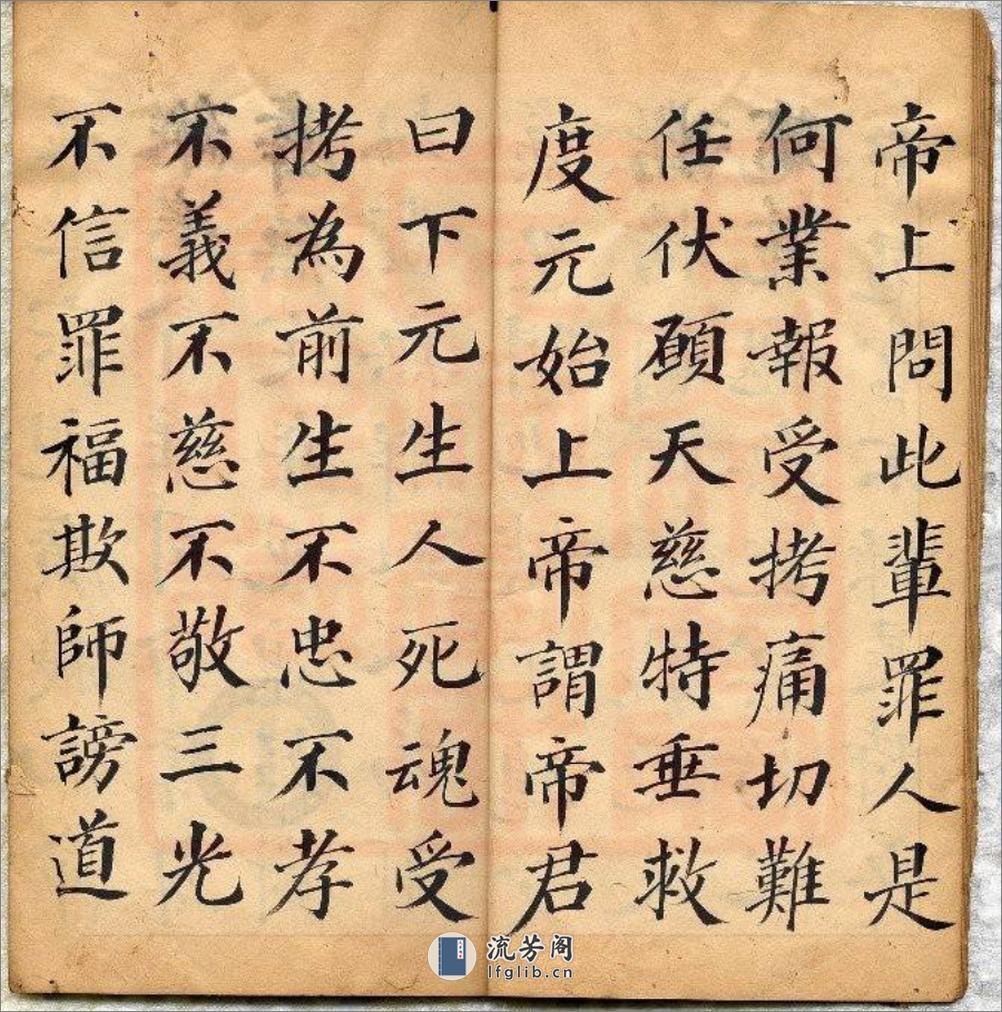 帝上問此輩罪人是
何業報受拷痛切難
任伏願天慈特垂救
度元始上帝謂帝君
曰下元生人死魂受
拷為前生不忠不孝
不義不慈不敬三光
不信罪福欺師謗道
流芳阁
lfglib.cn